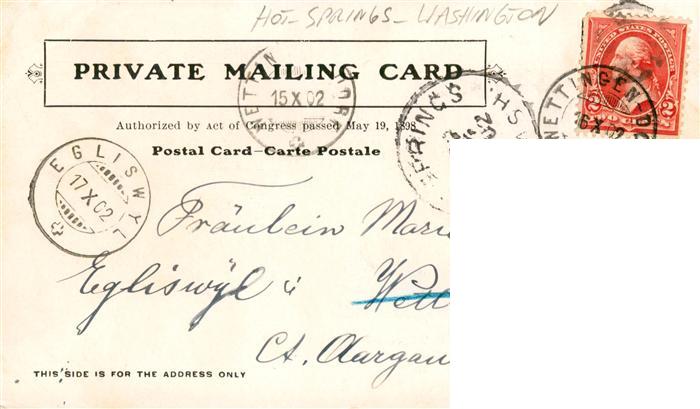 HOT-SPRINGS-WASHINGTON
PRIVATE MAILING CARD
Authorized by act of Congress passed May 19, 1898
Postal Card–Carte Postale
15 X 02
SPRINGS WASH
NETTINGEN
16 X 02
2
EGLISWYL
17 X 02
Fräulein Mari
Egliswyl
Ct. Aargau
THIS SIDE IS FOR THE ADDRESS ONLY